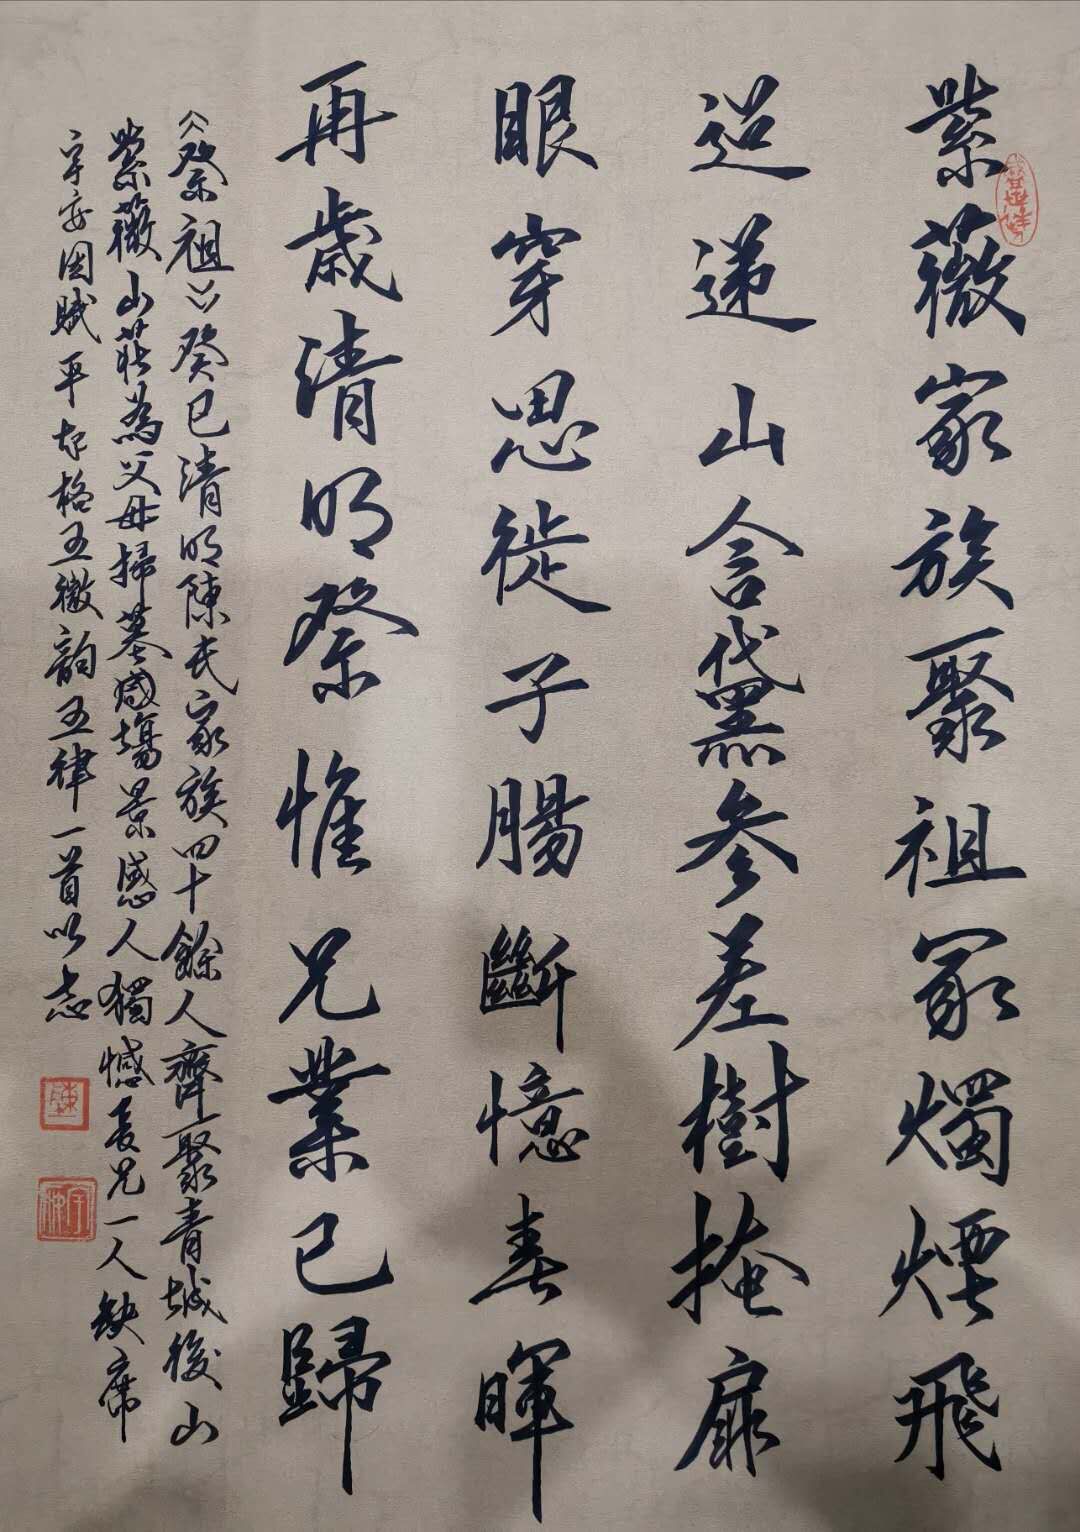 紫薇家族聚祖冢燭煙飛
迢遞山含黛參差樹掩扉
眼穿思徙子腸斷憶春暉
再歲清明祭惟兄業已歸
《祭祖》癸巳清明陳氏家族四十餘人齊聚青城後山
紫薇山莊為父母掃墓場景感人獨憾長兄一人缺席
宇安因賦平起格五微韵五律一首以志
陳